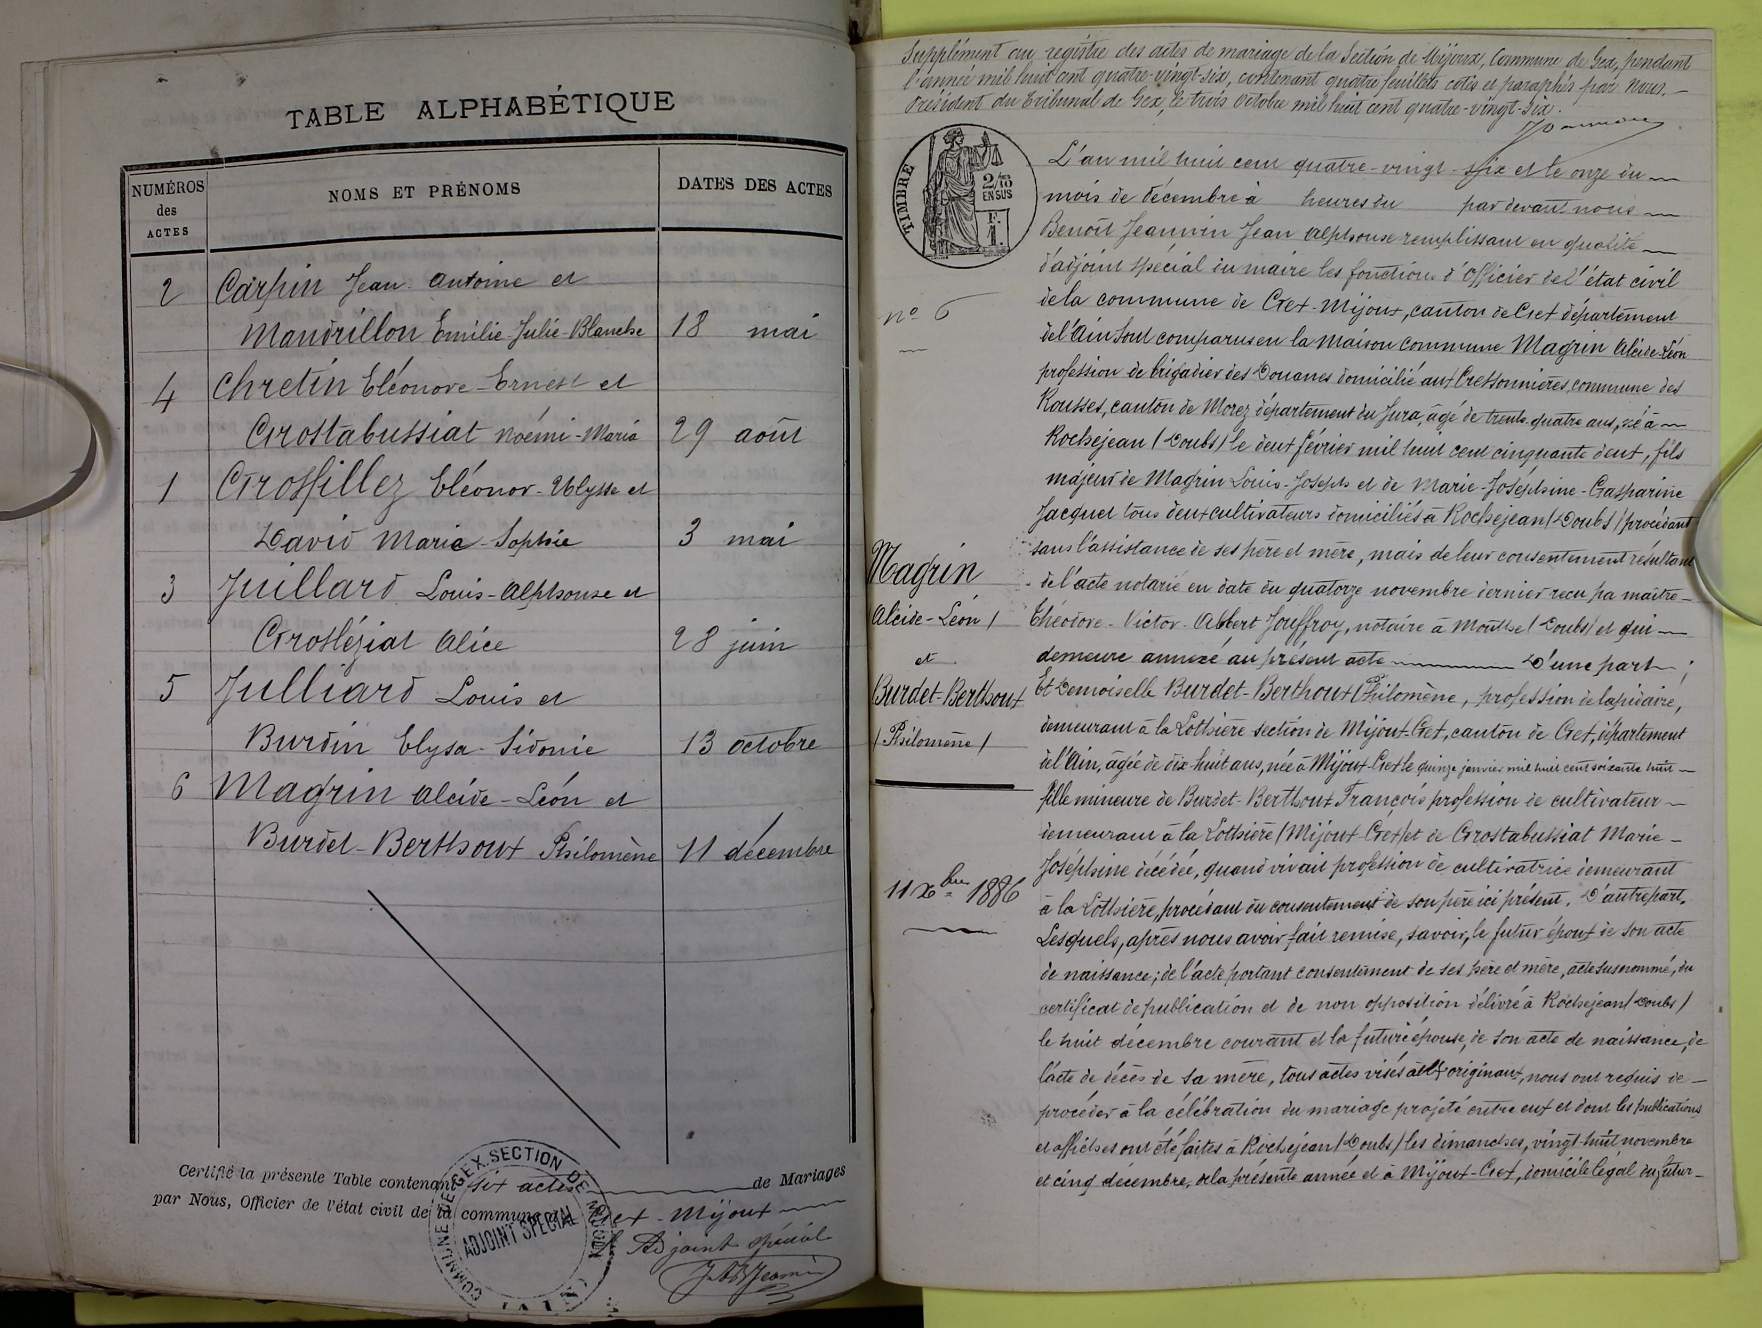 TABLE ALPHABÉTIQUE
NUMÉROS des ACTES
NOMS ET PRÉNOMS
DATES DES ACTES
2 Carpin Jean Antoine et
Mandrillon Emilie Julie-Blanche 18 mai
4 Chretin Eléonore-Ernest et
Grostabussiat Noémi-Maria 29 août
1 Grosfillez Eléonor-Ulysse et
David Marie-Sophie 3 mai
3 Juillard Louis-Alphonse et
Grosléziat Alice 28 juin
5 Julliard Louis et
Burdin Elysa-Sidonie 13 octobre
6 Magrin Alcide-Léon et
Burdet-Berthoux Philomène 11 décembre
Certifié la présente Table contenant six actes de Mariages
par Nous, Officier de l'état civil de la commune de Gex-Mijoux
l'Adjoint spécial
COMMUNE DE GEX. SECTION DE MIJOUX
ADJOINT SPECIAL
(AIN)
Supplément au registre des actes de mariage de la Section de Mijoux, Commune de Gex, pendant
l'année mil huit cent quatre-vingt-six, contenant quatre feuillets cotés et paraphés par Nous,
Président du Tribunal de Gex, le trois Octobre mil huit cent quatre-vingt-six.
TIMBRE
2/10
EN SUS
F.
1.
L'an mil huit cent quatre-vingt-six et le onze du
mois de décembre à heures du par devant nous
Benoît Jeannin Jean Alphonse remplissant en qualité
d'adjoint spécial du maire les fonctions d'Officier de l'état civil
de la commune de Gex-Mijoux, canton de Gex département
de l'Ain sont comparus en la maison commune Magrin Alcide Léon
profession de brigadier des Douanes domicilié aux Cressonnières, commune des
Rousses, canton de Morez département du Jura, âgé de trente quatre ans, né à
Rochejean (Doubs) le deux février mil huit cent cinquante deux, fils
majeur de Magrin Louis-Joseph et de Marie-Joséphine-Gasparine
Jacquet tous deux cultivateurs domiciliés à Rochejean (Doubs) procédant
sans l'assistance de ses père et mère, mais de leur consentement résultant
de l'acte notarié en date du quatorze novembre dernier recu pa maître
Théodore-Victor-Albert Jouffroy, notaire à Mouthe (Doubs) et qui
demeure annexé au présent acte D'une part;
Et Demoiselle Burdet-Berthoux (Philomène, profession de lapidaire,
demeurant à la Lothière section de Mijoux-Gex, canton de Gex, département
de l'Ain, âgée de dix-huit ans, née à Mijoux-Gex le quinze janvier mil huit cent soixante huit
fille mineure de Burdet-Berthoux François profession de cultivateur
demeurant à la Lothière (Mijoux-Gex) et de Grostabussiat Marie-
Joséphine décédée, quand vivait profession de cultivatrice demeurant
à la Lothière, procédant du consentement de son père ici présent. D'autre part.
Lesquels, après nous avoir fait remise, savoir, le futur époux de son acte
de naissance; de l'acte portant consentement de ses père et mère, acte susnommé, du
certificat de publication et de non opposition délivré à Rochejean (Doubs)
le huit décembre courant et la future épouse, de son acte de naissance, de
l'acte de décès de sa mère, tous actes visés aux originaux, nous ont requis de
procéder à la célébration du mariage projeté entre eux et dont les publications
et affiches ont été faites à Rochejean (Doubs) les dimanches, vingt-huit novembre
et cinq décembre, de la présente année et à Mijoux-Gex, domicile légal du futur
no 6
Magrin
Alcide-Léon)
et
Burdet-Berthoux
(Philomène)
11 Xbre 1886